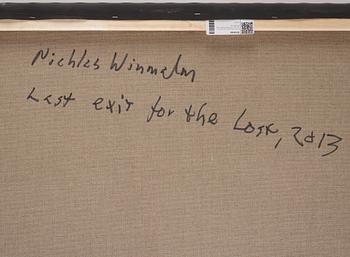 Nichlas Winmalm
Last exit for the Lost, 2013